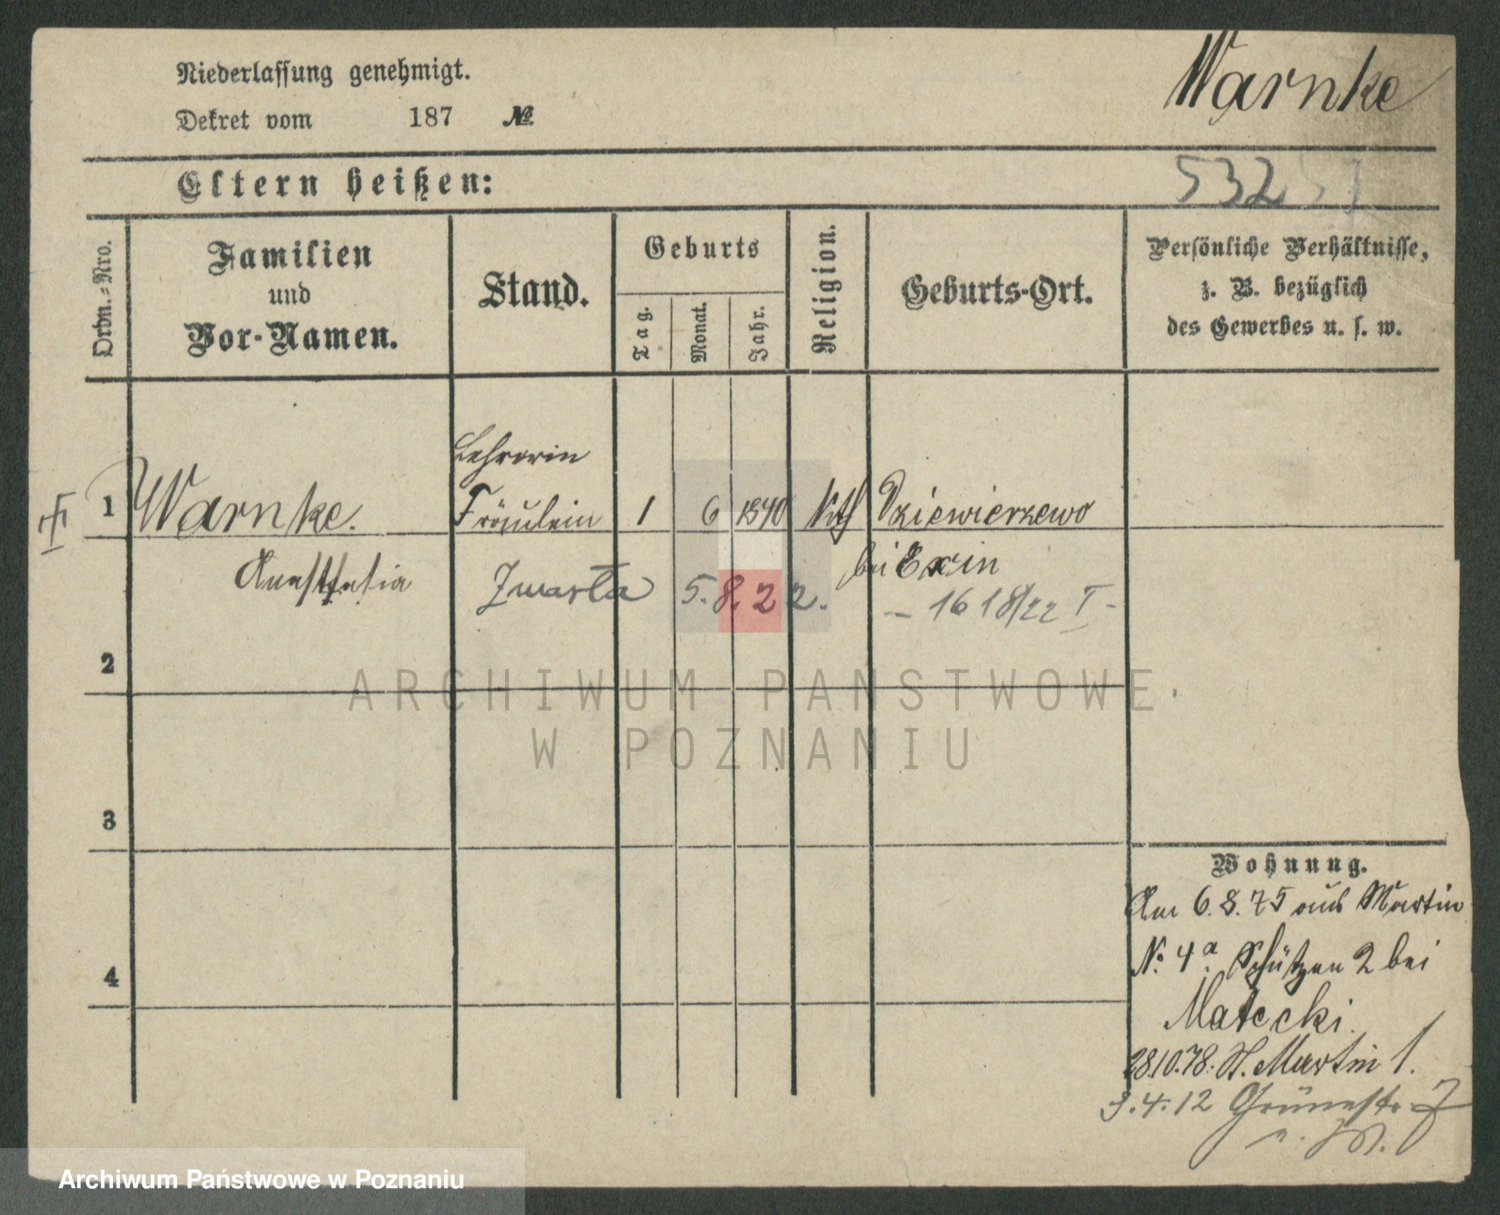 Niederlassung genehmigt.
Warnke
Dekret vom 187 №
Eltern heißen:
532
Ordn.-Nro.
Familien
und
Vor-Namen.
Stand.
Geburts
Tag.
Monat.
Jahr.
Religion.
Geburts-Ort.
Persönliche Verhältnisse,
z. B. bezüglich
des Gewerbes u. s. w.
Lehrerin
1 Warnke. Fräulein 1 6 1840 kth Dziewierzewo
Anasthasia bei Exin
Zmarła 5.8.22. - 1618/22 I -
2
ARCHIWUM PAŃSTWOWE
W POZNANIU
3
Wohnung.
Am 6.8.75 aus Martin
N: 4a. Schützen 2 bei
4
Matecki.
28.10.78. St. Martin 1.
3.4.12 Grünestr
Archiwum Państwowe w Poznaniu